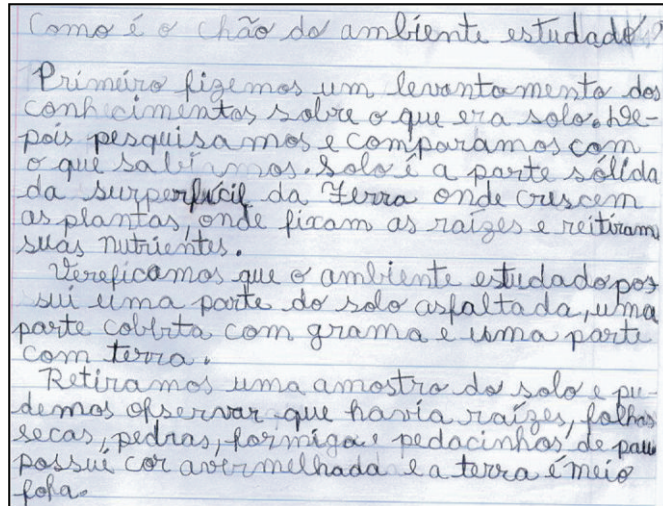 Como é o chão do ambiente estudado?
Primeiro fizemos um levantamento dos
conhecimentos sobre o que era solo. De-
pois pesquisamos e comparamos com
o que sabíamos. Solo é a parte sólida
da surperfícil da Terra onde crescem
as plantas, onde fixam as raízes e reitiram
suas nutrientes.
Vereficamos que o ambiente estudado pos
sui uma parte do solo asfaltada, uma
parte coberta com grama e uma parte
com terra.
Retiramos uma amostra do solo e pu-
demos observar que havia raízes, folhas
secas, pedras, formiga e pedacinhos de pau
possui cor avermelhada e a terra é meio
fofa.